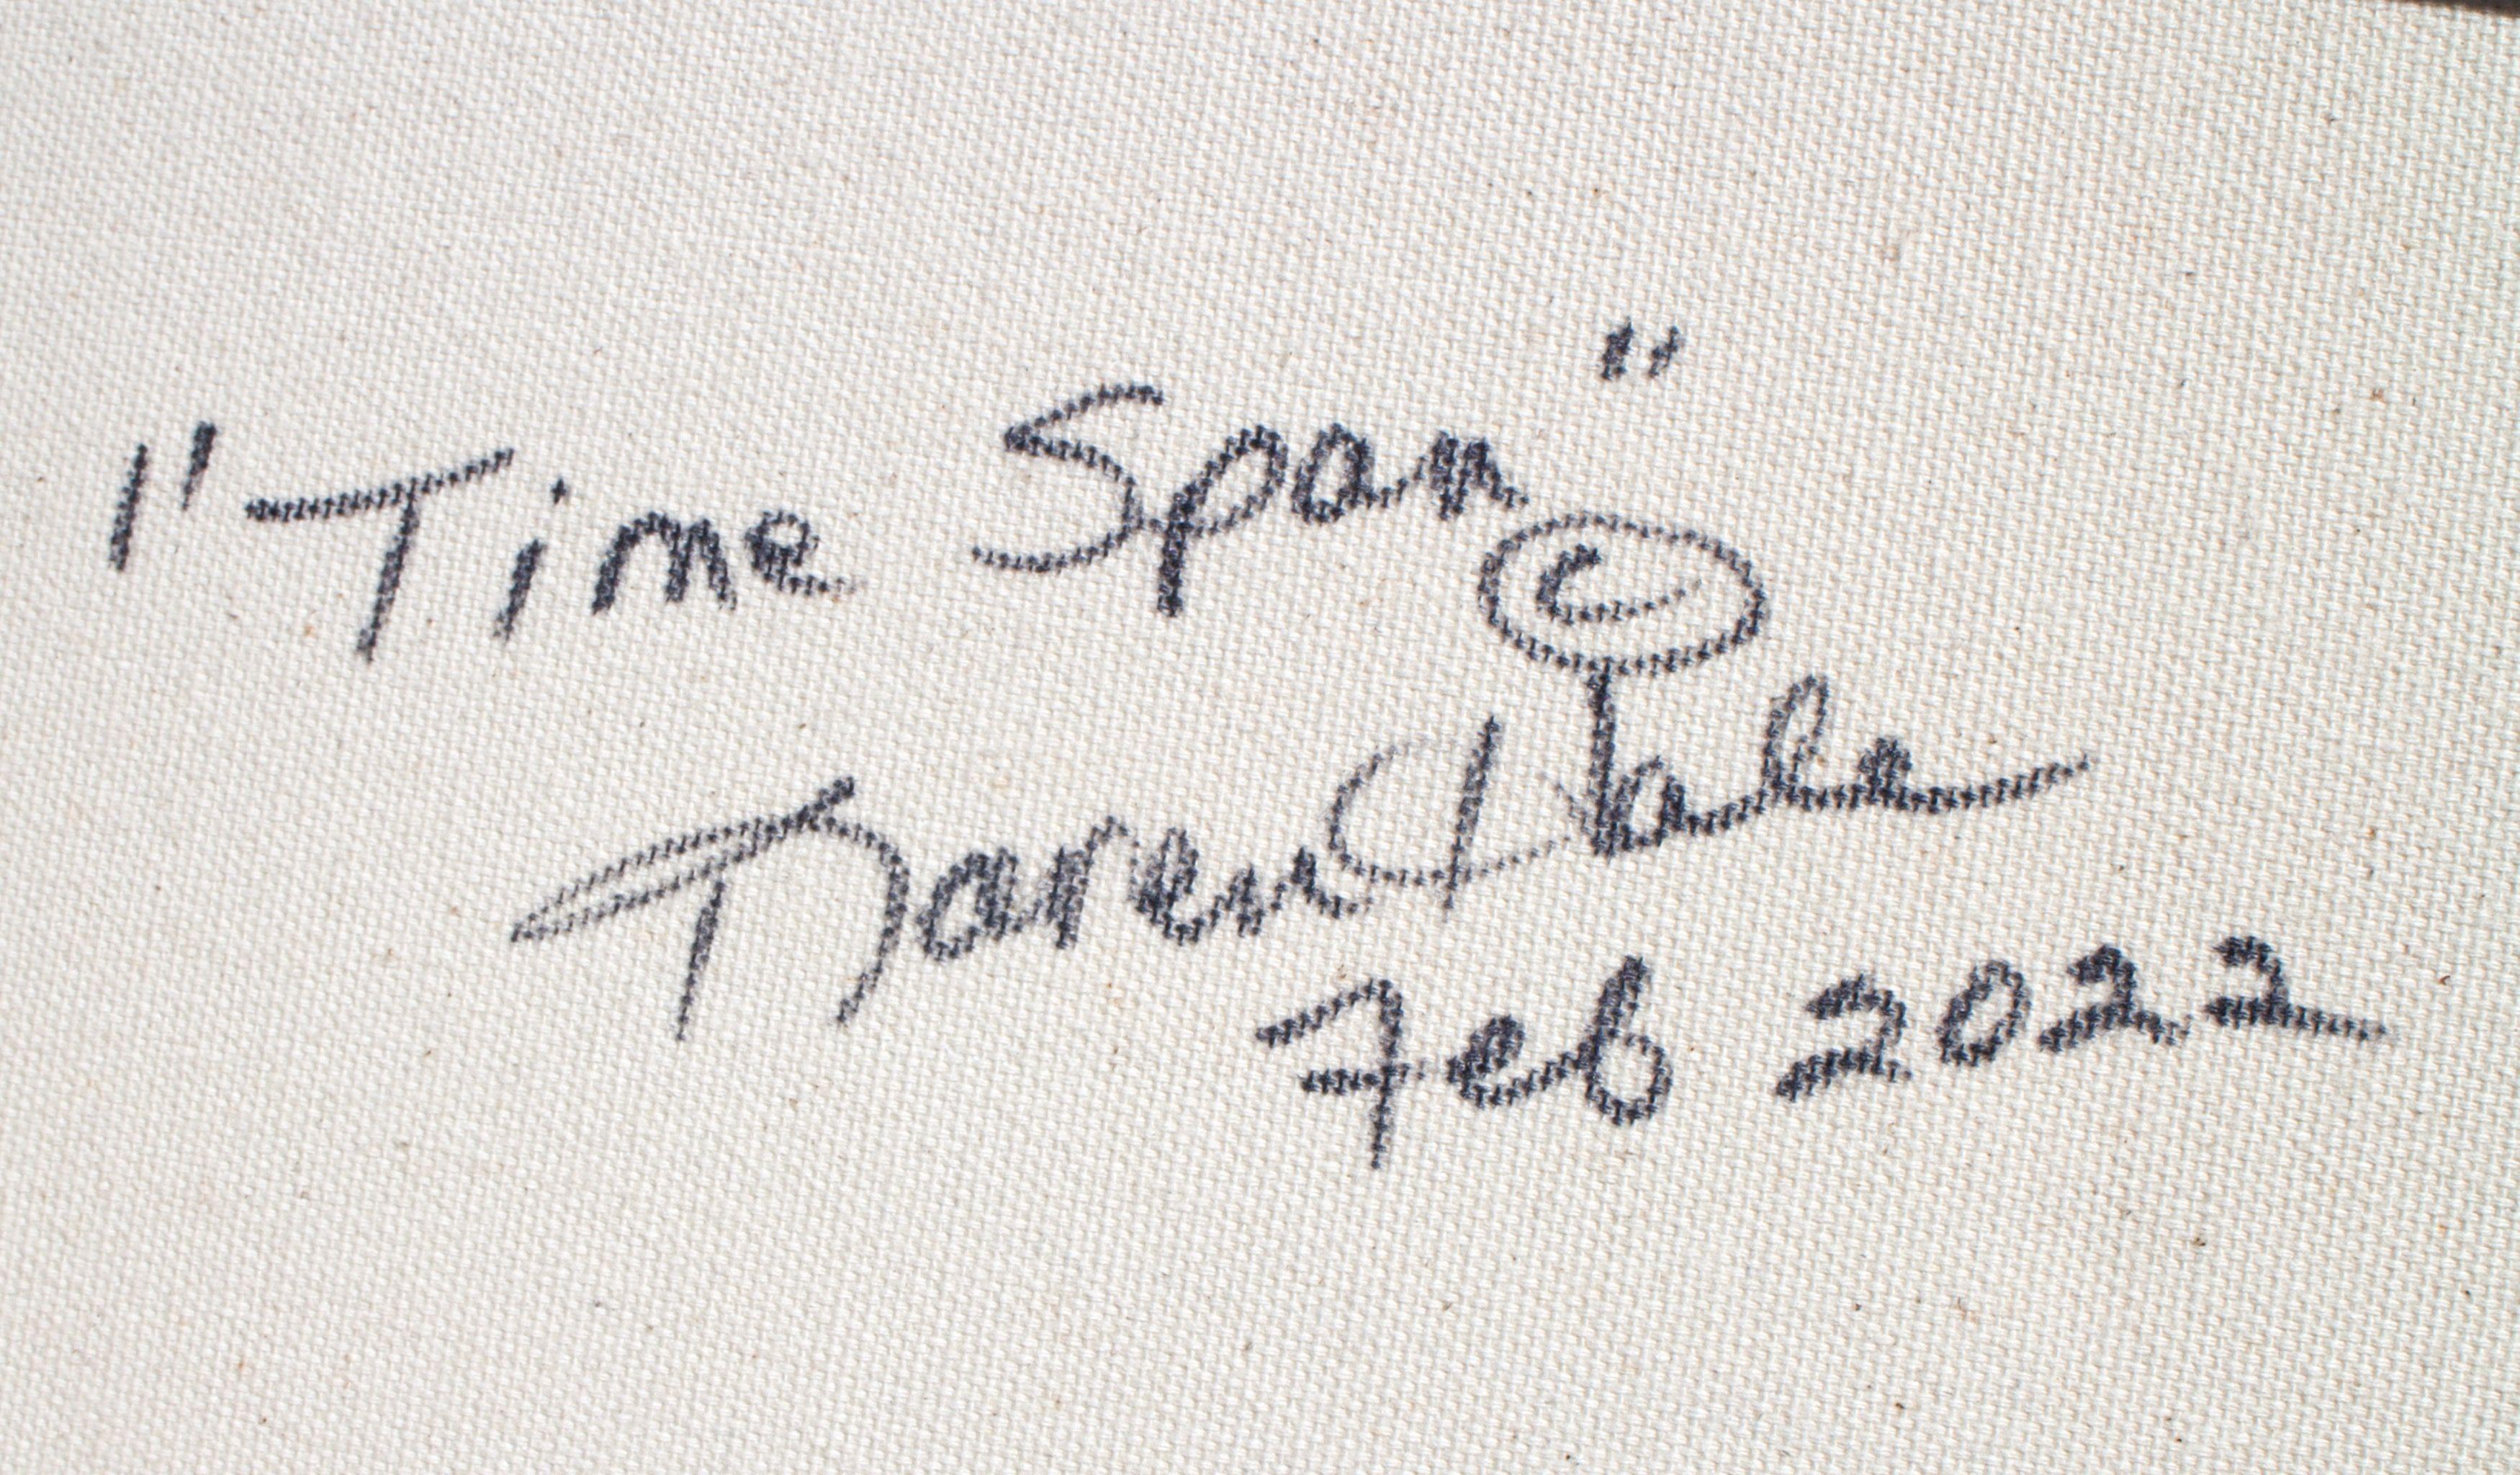 "Time Span"
©
Karen Hale
Feb 2022